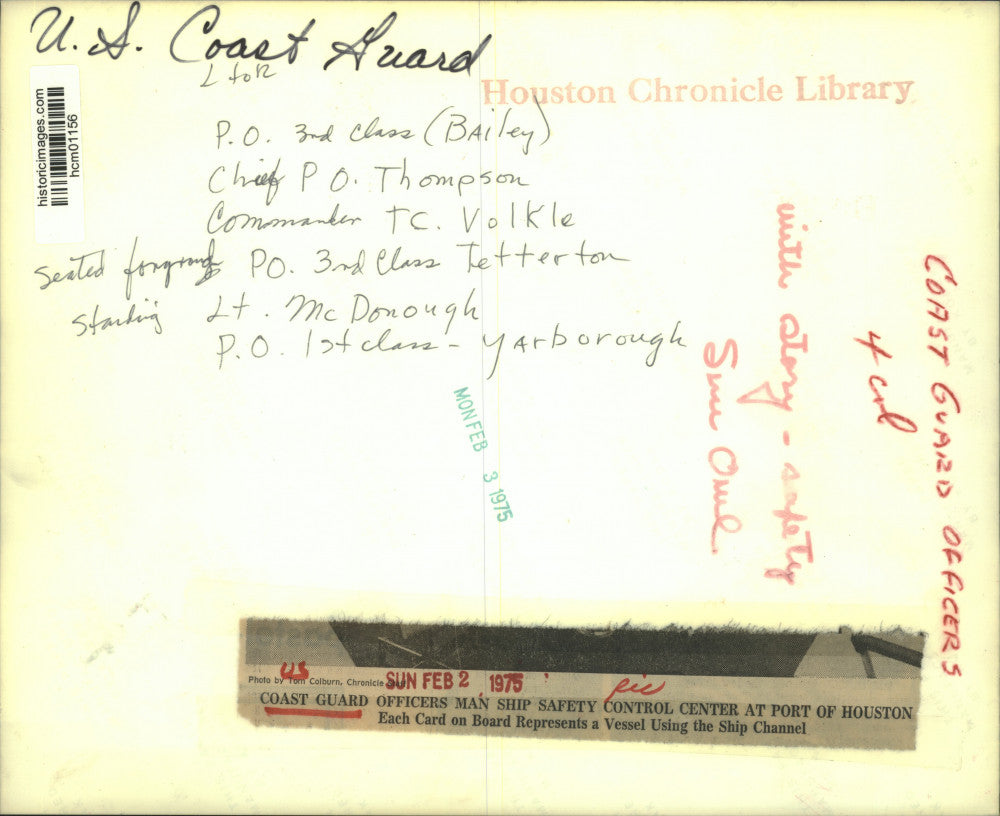 U.S. Coast Guard
L to R
Houston Chronicle Library
historicimages.com
hcm01156
P.O. 3rd class (BAiley)
Chief P O. Thompson
Commander TC. Volkle
Seated foreground PO. 3rd Class Tetterton
standing Lt. McDonough
P.O. 1st class - YArborough
MON FEB 3 1975
with story - safety
Sun Owl
4 col
COAST GUARD OFFICERS
Photo by Tom Colburn, Chronicle
US
SUN FEB 2 1975
pic
COAST GUARD OFFICERS MAN SHIP SAFETY CONTROL CENTER AT PORT OF HOUSTON
Each Card on Board Represents a Vessel Using the Ship Channel